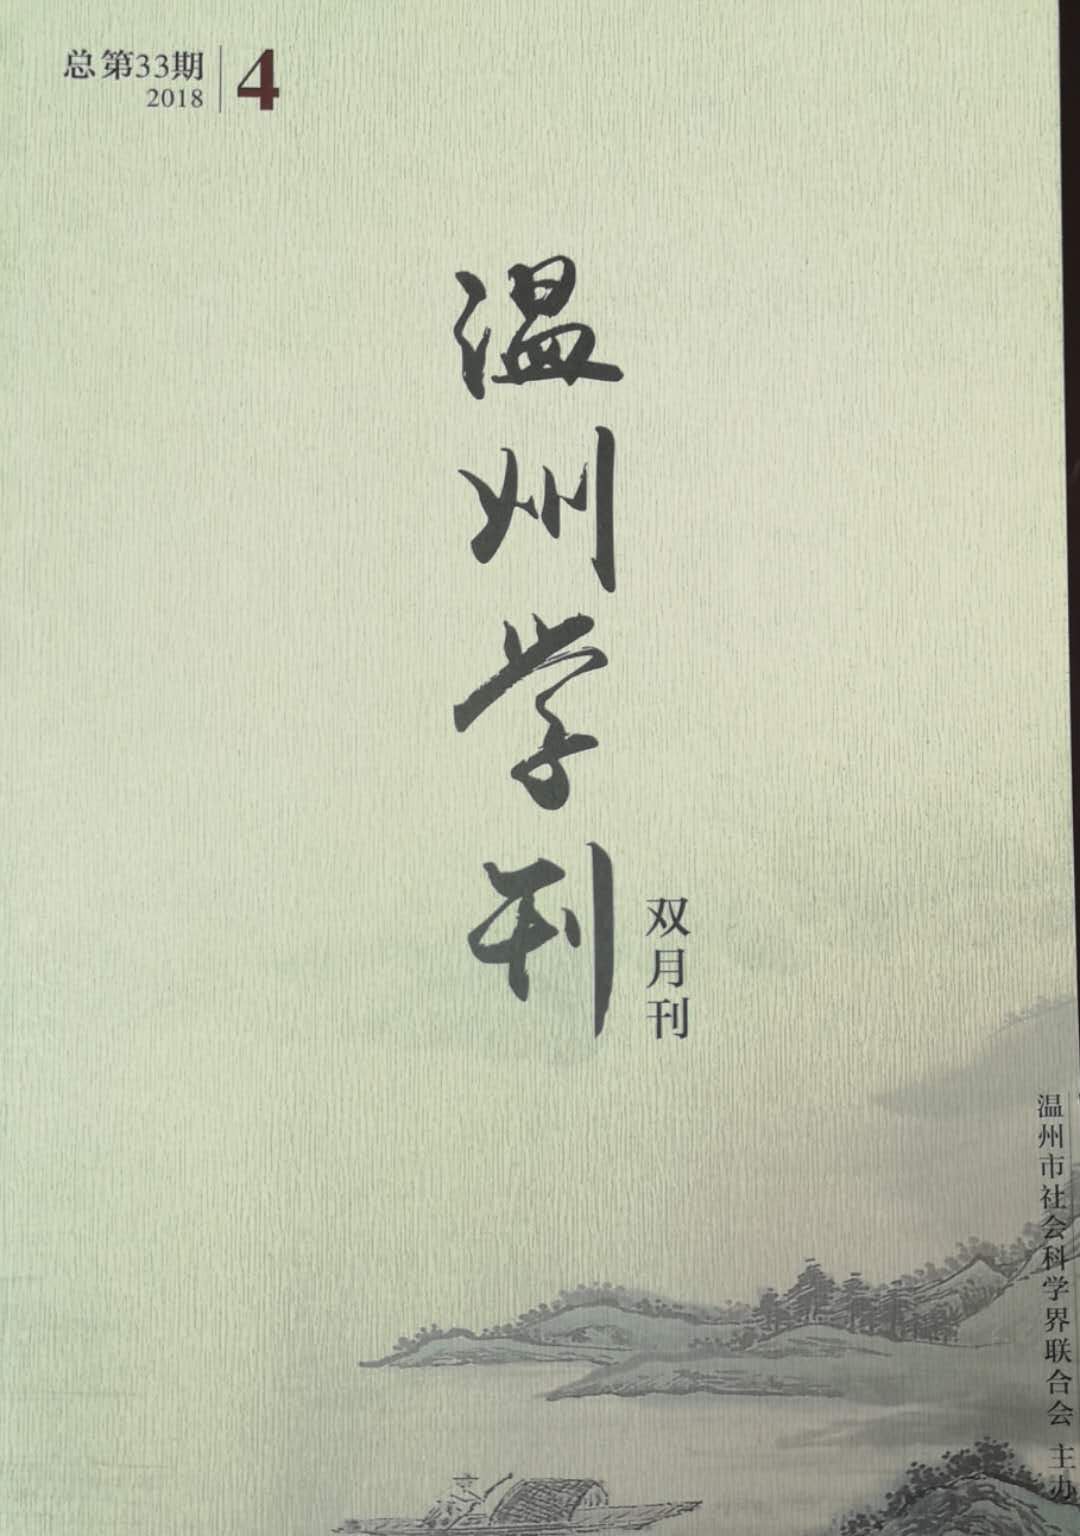 总第33期
2018
4
温州学刊
双月刊
温州市社会科学界联合会 主办